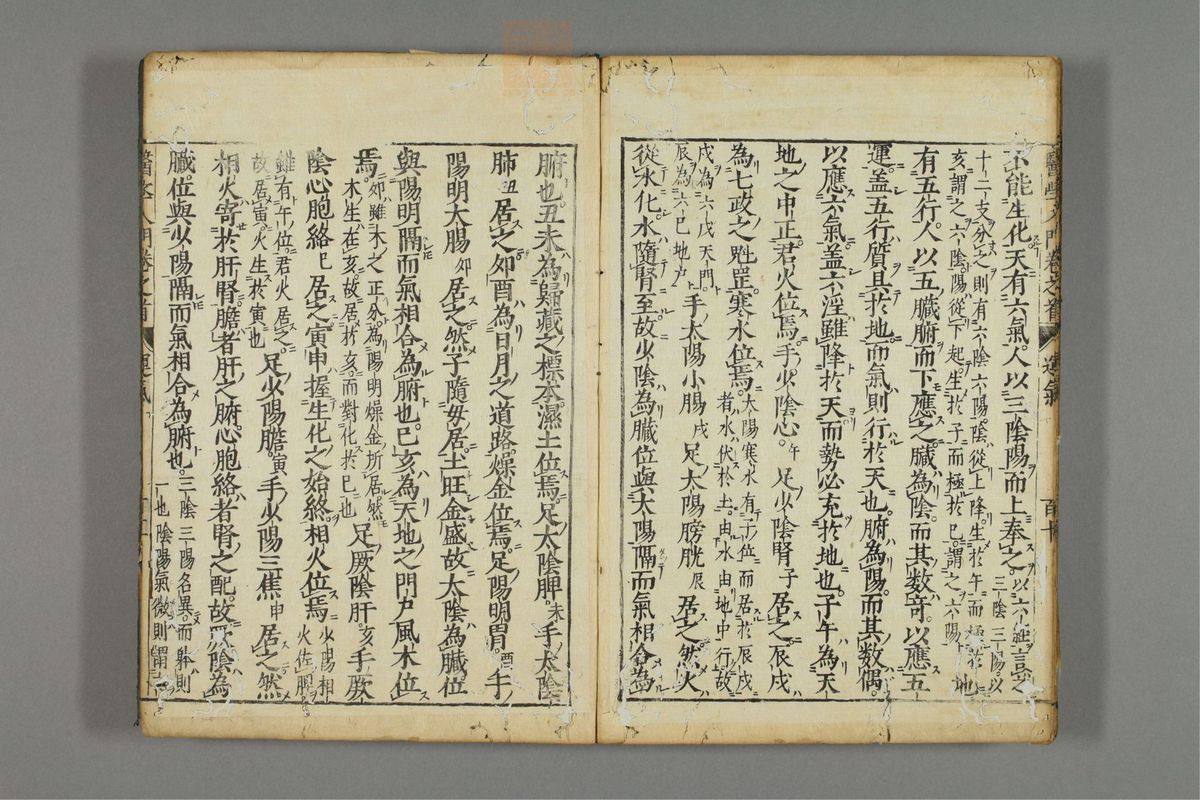 不能生化天有六氣人以三陰陽而上奉之以六經言之三陰三陽以
十二支分之則有六陰六陽陰從上降生於午而極於
亥謂之六陰陽從下起生於子而極於巳謂之六陽 地
有五行人以五臟腑而下應之臟為陰而其數奇以應五
運蓋五行質具於地而氣則行於天也腑為陽而其數偶
以應六氣蓋六淫雖降於天而勢必充於地也子午為天
地之中正君火位焉手少陰心午足少陰腎子居之辰戌
為七政之魁罡寒水位焉太陽寒水有子位而居於辰戌者水伏於土由水由地中行故
戌為六戊天門辰為六己地戶手太陽小腸戌足太陽膀胱辰居之然火
從水化水隨腎至故少陰為臟位與太陽隔而氣相合為
醫學入門卷之首 運氣
腑也丑未為歸藏之標本濕土位焉足太陰脾未手太陰
肺丑居之卯酉為日月之道路燥金位焉足陽明胃酉手
陽明大腸卯居之然子隨母居土旺金盛故太陰為臟位
與陽明隔而氣相合為腑也巳亥為天地之門戶風木位
焉卯雖木之正分為陽明燥金所居然木生在亥故居於亥而對化於巳也足厥陰肝亥手厥
陰心胞絡巳居之寅申握生化之始終相火位焉少陽相火佐
雖有午位君火居之故居寅火生於寅也足少陽膽寅手少陽三焦申居之然
相火寄於肝腎膽者肝之腑心胞絡者腎之配故厥陰為
臟位與少陽隔而氣相合為腑也三陰三陽名異而体則一也陰陽氣微則謂
醫學入門卷之首 運氣